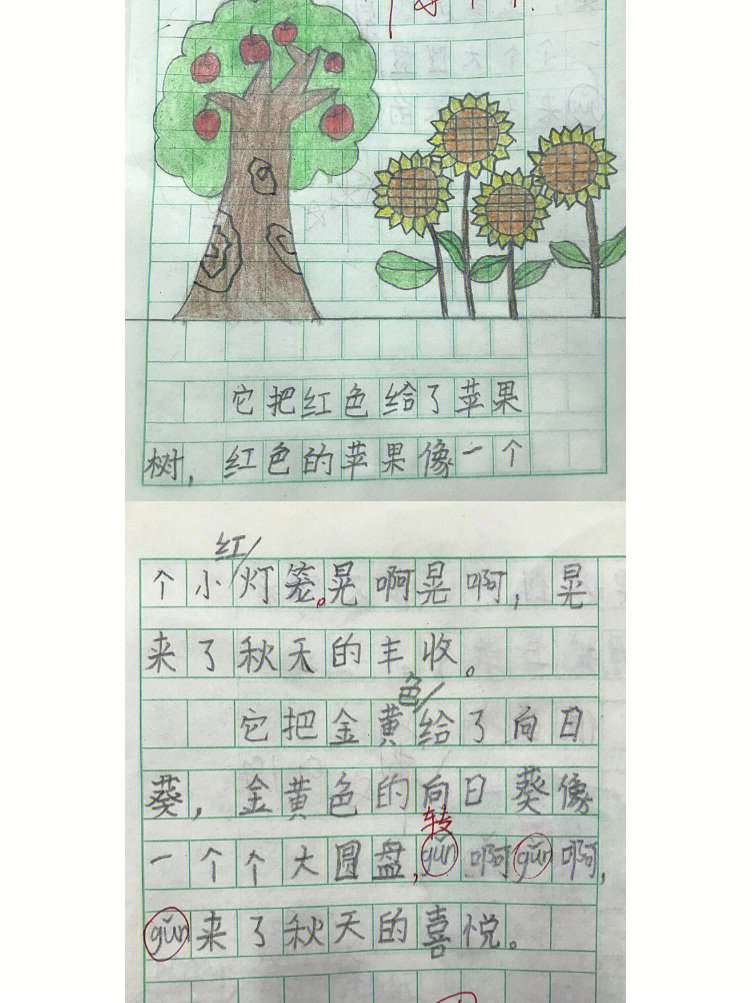 它把红色给了苹果
树，红色的苹果像一个
红
个小灯笼。晃啊晃啊，晃
来了秋天的丰收。
色
它把金黄给了向日
葵，金黄色的向日葵像
转
一个个大圆盘，gǔn啊gǔn啊，
gǔn来了秋天的喜悦。